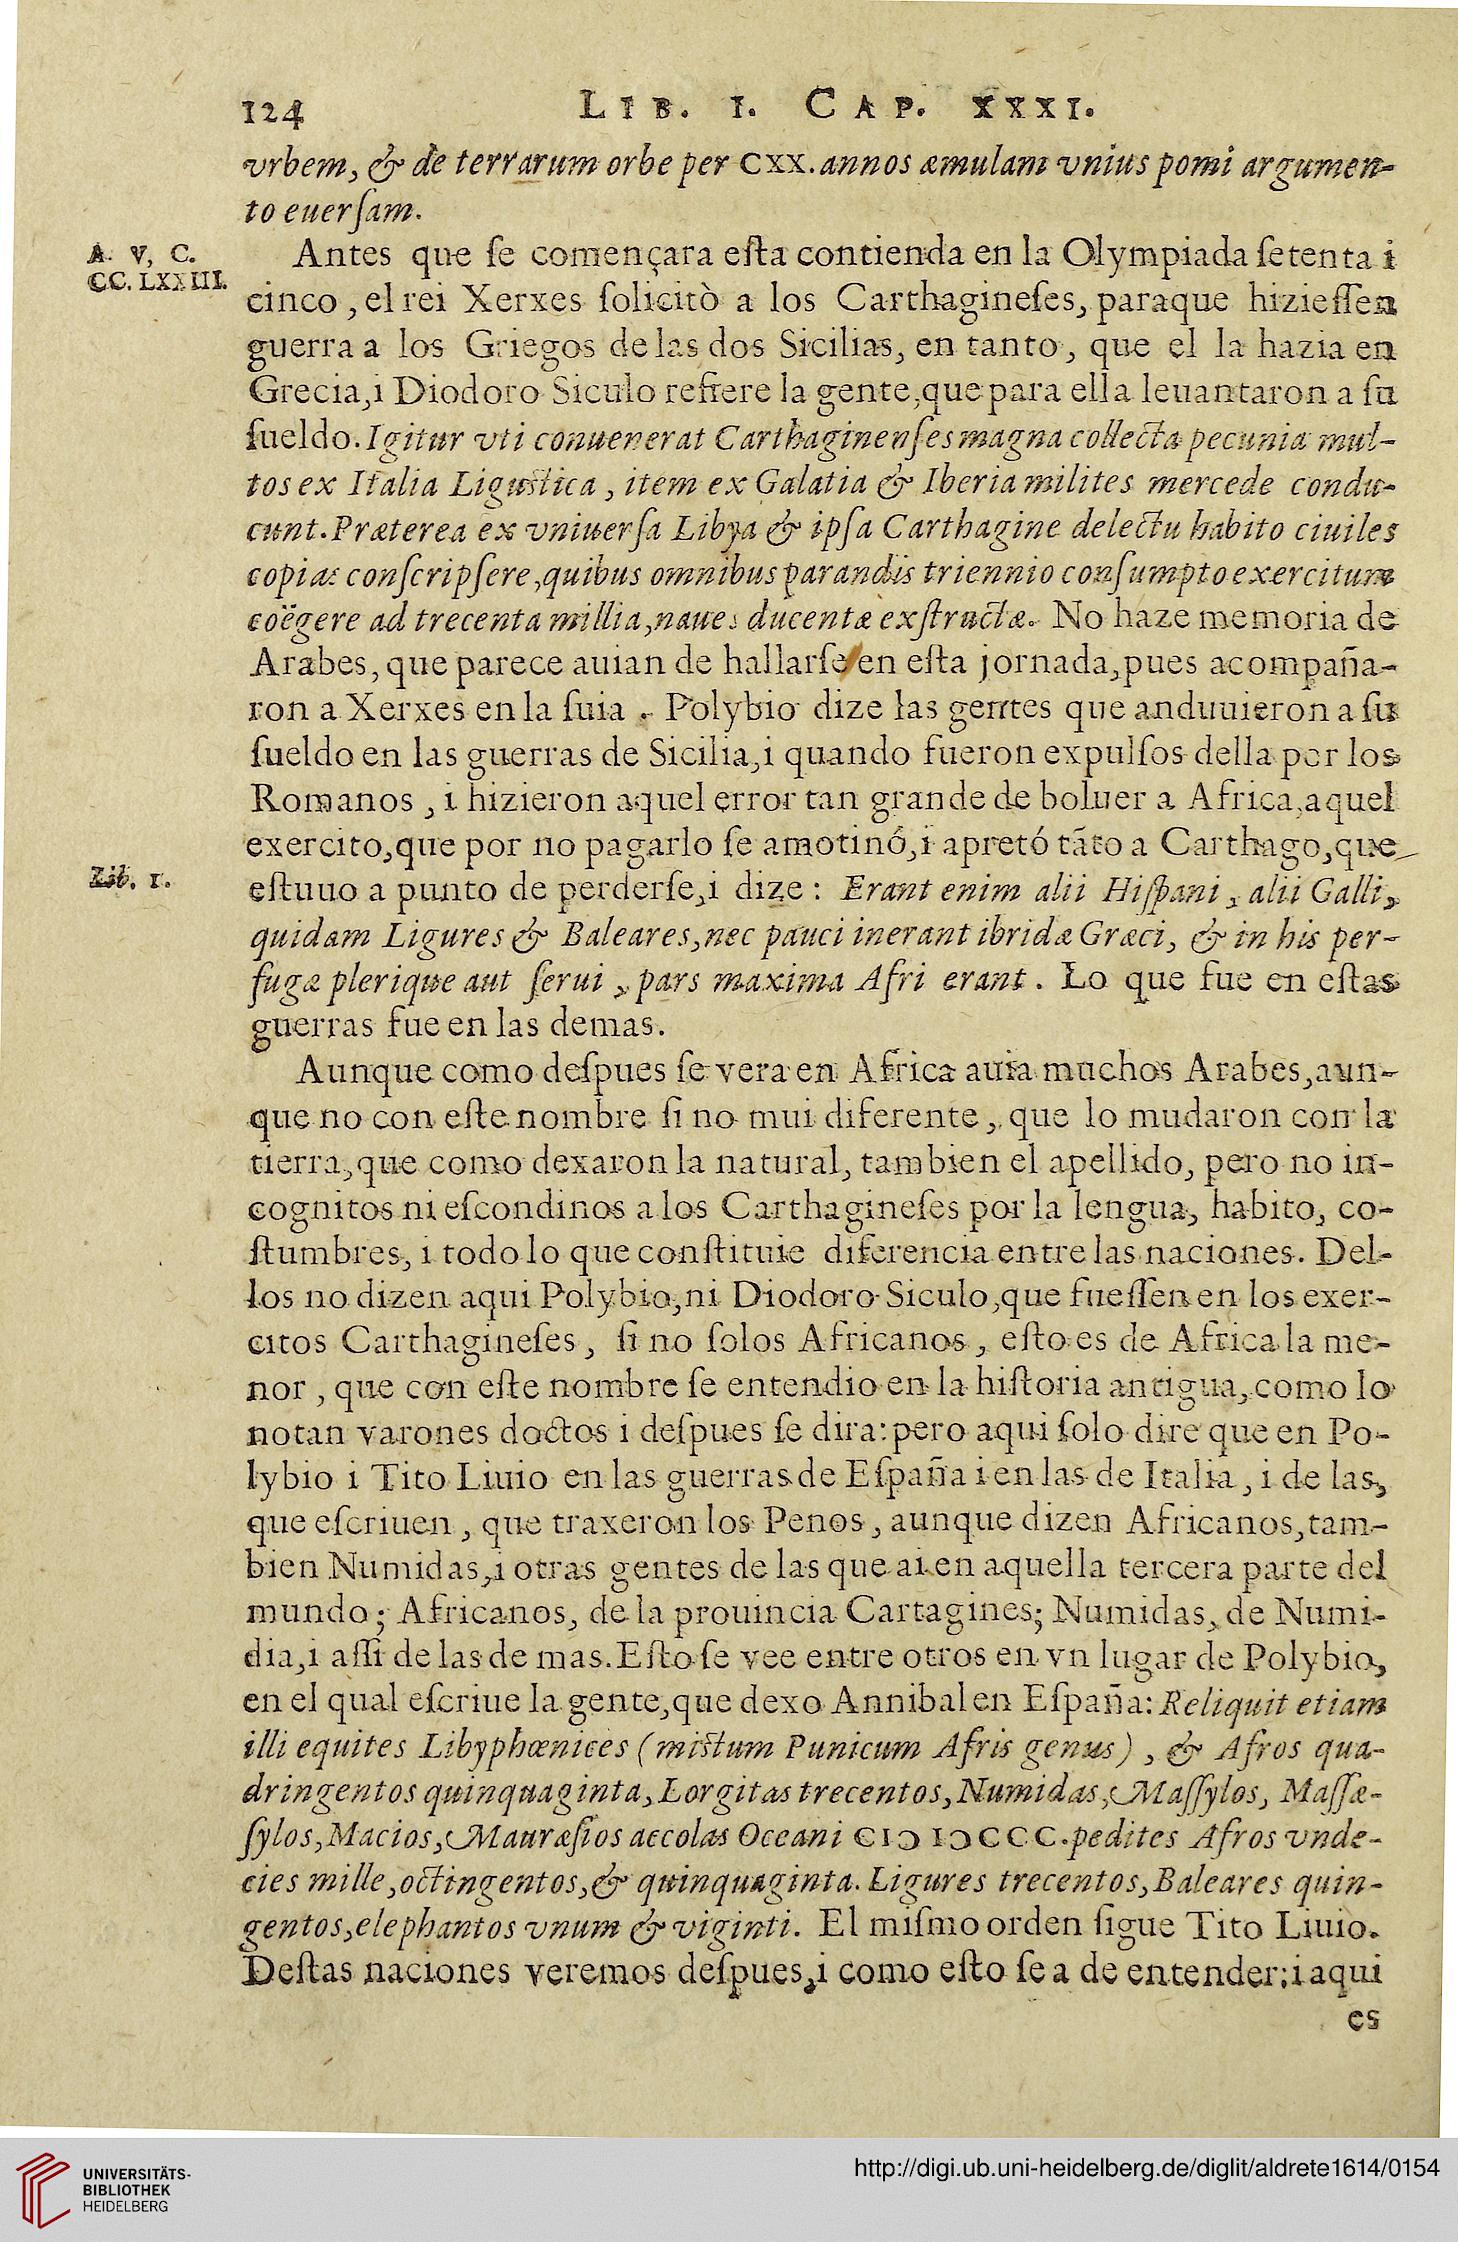 124 LIB. I. CAP. XXXI.
vrbem, & de terrarum orbe per CXX. annos æmulam vnius pomi argumen-
to euerſam.
A. V, C.
CC. LXXIII.
Antes que ſe començara eſta contienda en la Olympiada ſetenta i
cinco, el rei Xerxes ſolicitò a los Carthagineſes, paraque hizieſſen
guerra a los Griegos de las dos Sicilias, en tanto, que el la hazia en
Grecia, i Diodoro Siculo refiere la gente, que para ella leuantaron a ſu
ſueldo. Igitur vti conuenerat Carthaginenſes magna collecta pecunia mul-
tos ex Italia Liguſtica, item ex Galatia & Iberia milites mercede condu-
cunt. Præterea ex vniuerſa Libya & ipſa Carthagine delectu habito ciuiles
copias conſcripſere, quibus omnibus parandis triennio conſumpto exercitum
coëgere ad trecenta millia, naues ducentæ exſtructæ. No haze memoria de
Arabes, que parece auian de hallarſe en eſta jornada, pues acompaña-
ron a Xerxes en la ſuia. Polybio dize las gentes que anduuieron a ſu
ſueldo en las guerras de Sicilia, i quando fueron expulſos della por los
Romanos, i hizieron aquel error tan grande de boluer a Africa, aquel
exercito, que por no pagarlo ſe amotinó, i apretó tãto a Carthago, que
Lib. 1.
eſtuuo a punto de perderſe, i dize: Erant enim alii Hiſpani, alii Galli,
quidam Ligures & Baleares, nec pauci inerant ibridæ Græci, & in his per-
fugæ plerique aut ſerui, pars maxima Afri erant. Lo que fue en eſtas
guerras fue en las demas.
Aunque como deſpues ſe vera en Africa auia muchos Arabes, aun-
que no con eſte nombre ſi no mui diferente, que lo mudaron con la
tierra, que como dexaron la natural, tambien el apellido, pero no in-
cognitos ni eſcondinos a los Carthagineſes por la lengua, habito, co-
ſtumbres, i todo lo que conſtituie diferencia entre las naciones. Del-
los no dizen aqui Polybio, ni Diodoro Siculo, que fueſſen en los exer-
citos Carthagineſes, ſi no ſolos Africanos, eſto es de Africa la me-
nor, que con eſte nombre ſe entendio en la hiſtoria antigua, como lo
notan varones doctos i deſpues ſe dira: pero aqui ſolo dire que en Po-
lybio i Tito Liuio en las guerras de Eſpaña i en las de Italia, i de las,
que eſcriuen, que traxeron los Penos, aunque dizen Africanos, tam-
bien Numidas, i otras gentes de las que ai en aquella tercera parte del
mundo; Africanos, de la prouincia Cartagines; Numidas, de Numi-
dia, i aſſi de las de mas. Eſto ſe vee entre otros en vn lugar de Polybio,
en el qual eſcriue la gente, que dexo Annibal en Eſpaña: Reliquit etiam
illi equites Libyphœnices (miſtum Punicum Afris genus), & Afros qua-
dringentos quinquaginta, Lorgitas trecentos, Numidas, Maſſylos, Maſſæ-
ſylos, Macios, Mauræſios accolas Oceani CIↃ IↃCCC. pedites Afros vnde-
cies mille, octingentos, & quinquaginta. Ligures trecentos, Baleares quin-
gentos, elephantos vnum & viginti. El miſmo orden ſigue Tito Liuio.
Deſtas naciones veremos deſpues, i como eſto ſe a de entender; i aqui
es
UNIVERSITÄTS-
BIBLIOTHEK
HEIDELBERG
http://digi.ub.uni-heidelberg.de/diglit/aldrete1614/0154